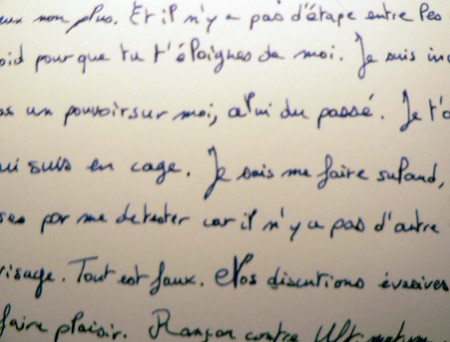 eux non plus. Et il n'y a pas d'étape entre les
oid pour que tu t'éloignes de moi. Je suis in
as un pouvoir sur moi, celui du passé. Je t'a
ui suis en cage. Je sais me faire
par me detester car il n'y a pas d'autre
visage. Tout est faux. Nos discutions évasives
faire plaisir. Rançon contre Ultimatum.